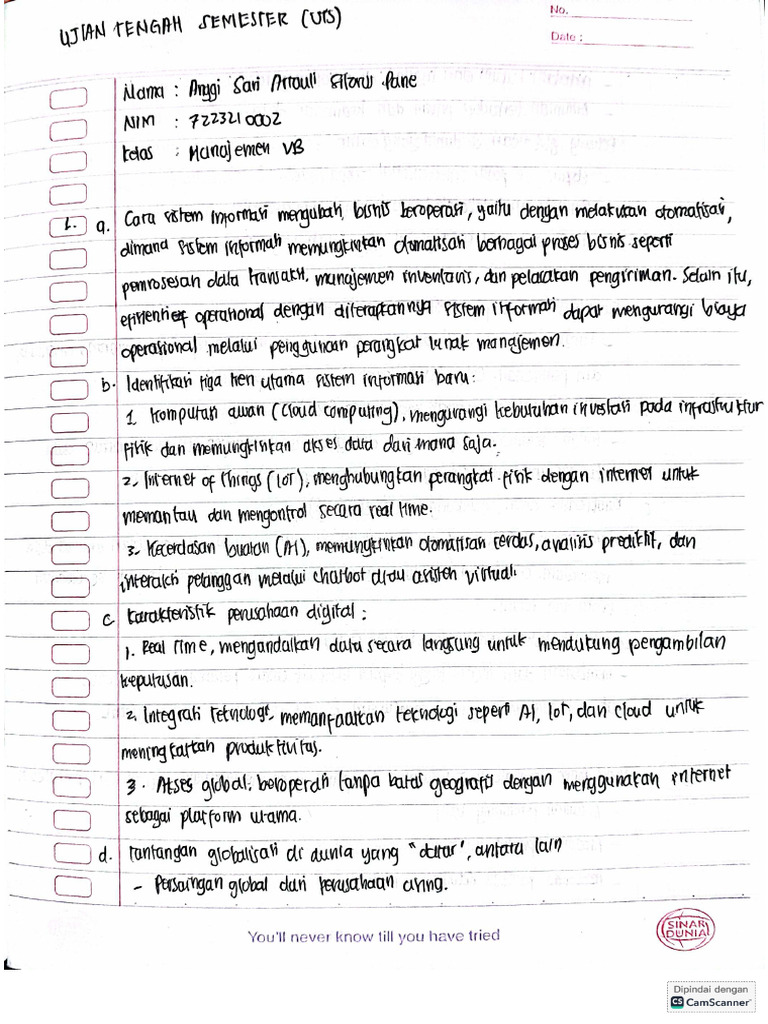 UJIAN TENGAH SEMESTER (UTS)
No.
Date :
Nama : Anggi Sari Artouli Sitorus Pane
NIM : 7223210002
Kelas : Manajemen VB
1. a. Cara sistem informasi mengubah bisnis beroperasi, yaitu dengan melakukan otomatisasi,
dimana sistem informasi memungkinkan otomatisasi berbagai proses bisnis seperti
pemrosesan data transaksi, manajemen inventaris, dan pelacakan pengiriman. Selain itu,
efisiensi operasional dengan diterapkannya sistem informasi dapat mengurangi biaya
operasional melalui penggunaan perangkat lunak manajemen.
b. Identifikasi tiga tren utama sistem informasi baru :
1. Komputasi awan (cloud computing), mengurangi kebutuhan investasi pada infrastruktur
fisik dan memungkinkan akses data dari mana saja.
2. Internet of Things (IoT), menghubungkan perangkat fisik dengan internet untuk
memantau dan mengontrol secara real time.
3. Kecerdasan buatan (AI), memungkinkan otomatisasi cerdas, analisis prediktif, dan
interaksi pelanggan melalui chatbot atau asisten virtual.
c. Karakteristik perusahaan digital :
1. Real Time, mengandalkan data secara langsung untuk mendukung pengambilan
keputusan.
2. Integrasi Teknologi, memanfaatkan teknologi seperti AI, IoT, dan cloud untuk
meningkatkan produktivitas.
3. Akses global, beroperasi tanpa batas geografis dengan menggunakan internet
sebagai platform utama.
d. Tantangan globalisasi di dunia yang "datar", antara lain
- Persaingan global dari perusahaan asing.
You'll never know till you have tried
SINAR
DUNIA
Dipindai dengan
CS CamScanner